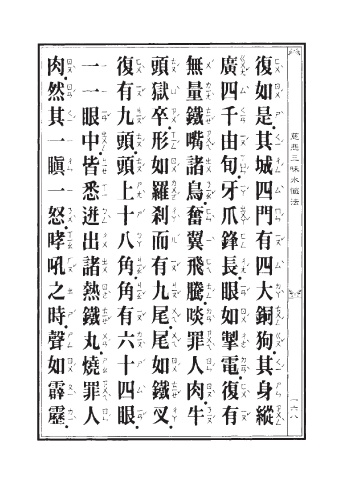 慈悲三昧水懺法
一六八
復如是。其城四門有四大銅狗。其身縱
廣四千由旬。牙爪鋒長。眼如掣電。復有
無量鐵嘴諸鳥。奮翼飛騰。啖罪人肉。牛
頭獄卒。形如羅剎而有九尾。尾如鐵叉。
復有九頭。頭上十八角。角有六十四眼。
一一眼中。皆悉迸出諸熱鐵丸。燒罪人
肉。然其一瞋一怒。哮吼之時。聲如霹靂。